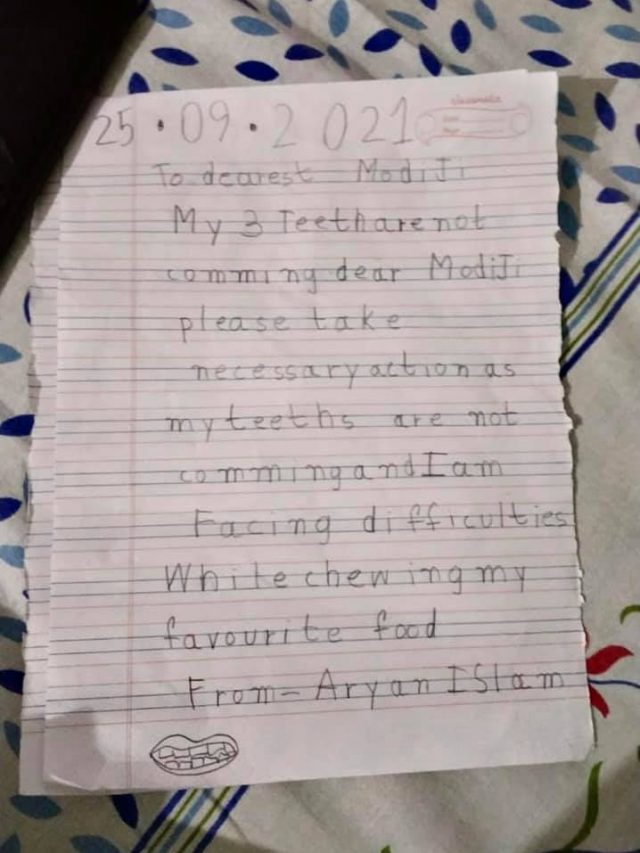 classmate
25.09.2021
To dearest ModiJi
My 3 Teeth are not
comming dear ModiJi
please take
necessary action as
my teeths are not
comming and I am
Facing difficulties
While chewing my
favourite food
From - Aryan ISlam